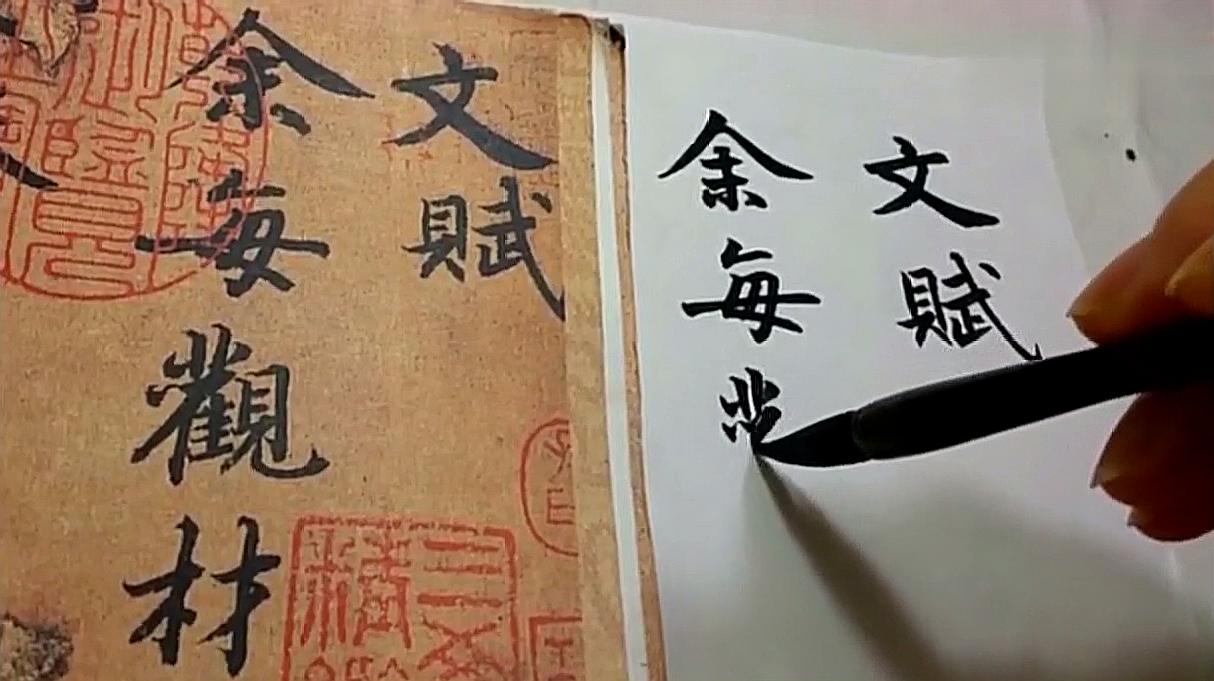 文賦
余每觀材
文賦
余每